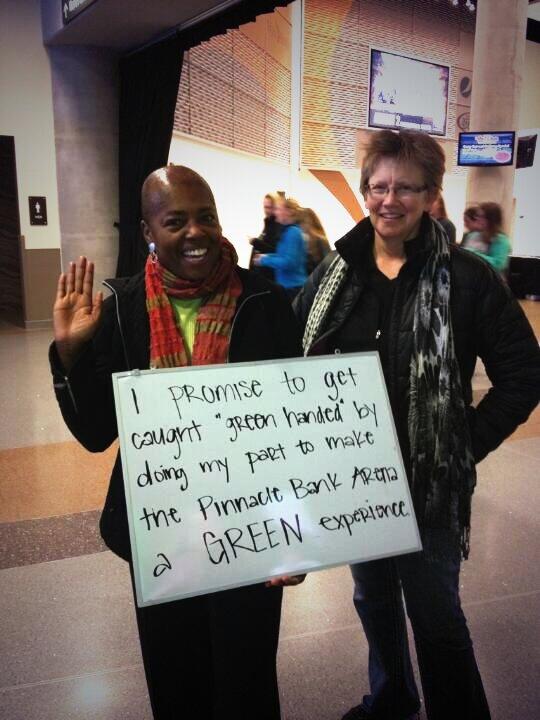 I PROMISE to get
caught "green handed" by
doing my part to make
the Pinnacle Bank Arena
a GREEN experience.